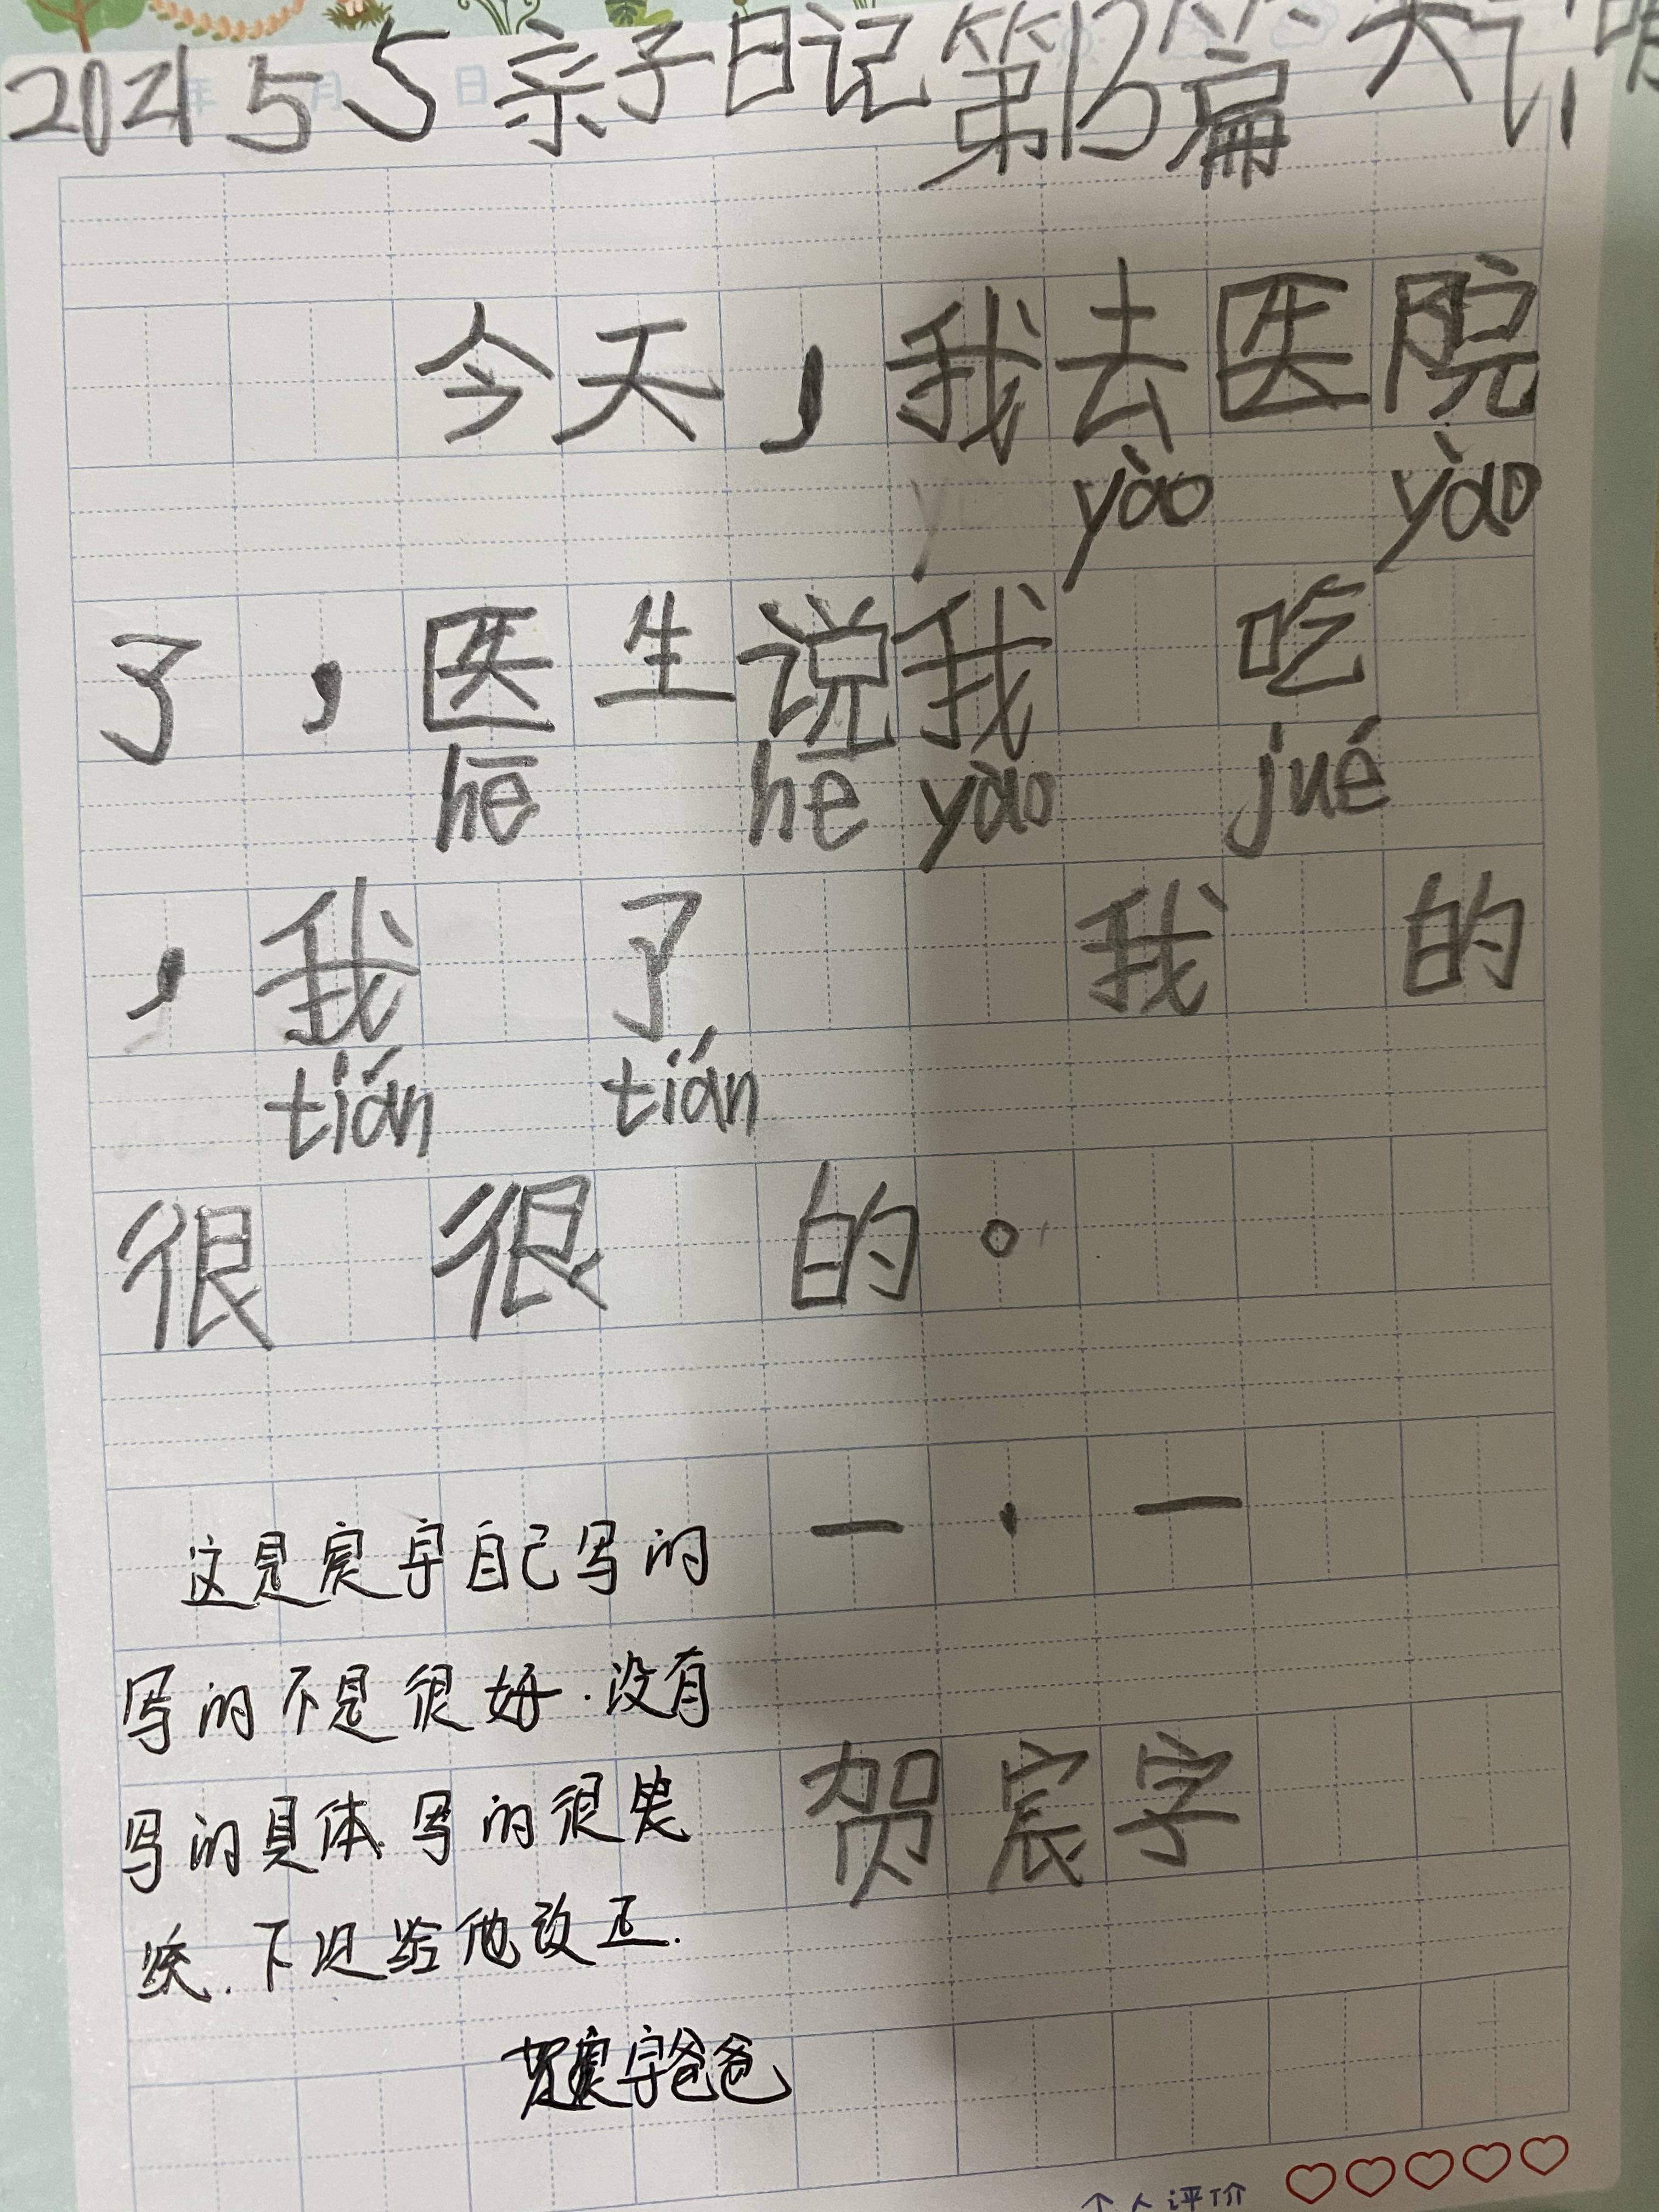 2021 5 5 亲子日记第13篇 天气:晴
年 月 日
今天,我去医院
yào yào
了,医生说我 吃
hē hē yào jué
,我 了 我 的
tián tián
很 很 的。
这是宸宇自己写的
一·一
写的不是很好.没有
写的具体.写的很笼
贺宸宇
统.下次给他改正.
贺宸宇爸爸
个人评价